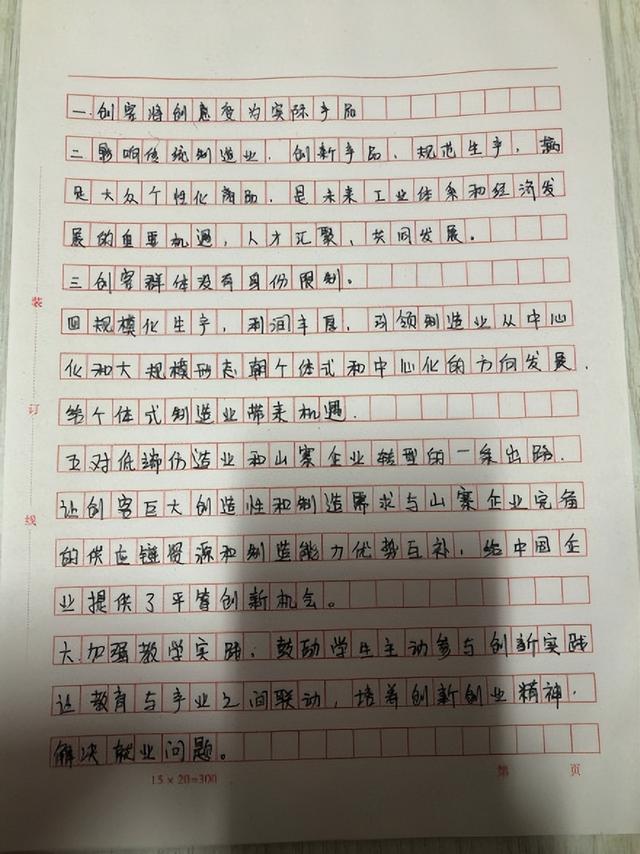 一.创客将创意变为实际产品
二影响传统制造业.创新产品、规范生产,满
足大众个性化商品.是未来工业体系和经济发
展的重要机遇,人才汇聚、共同发展。
三创客群体没有身份限制。
装
四规模化生产,利润丰厚,引领制造业从中心
化和大规模形态朝个体式和中心化的方向发展.
给个体式制造业带来机遇.
订
五对低端仿造业和山寨企业转型的一条出路.
让创客巨大创造性和制造需求与山寨企业完备
线
的供应链资源和制造能力优势互补,给中国企
业提供了平等创新机会。
六.加强教学实践,鼓励学生主动参与创新实践
让教育与产业之间联动,培养创新创业精神.
解决就业问题。
15×20=300
第 页